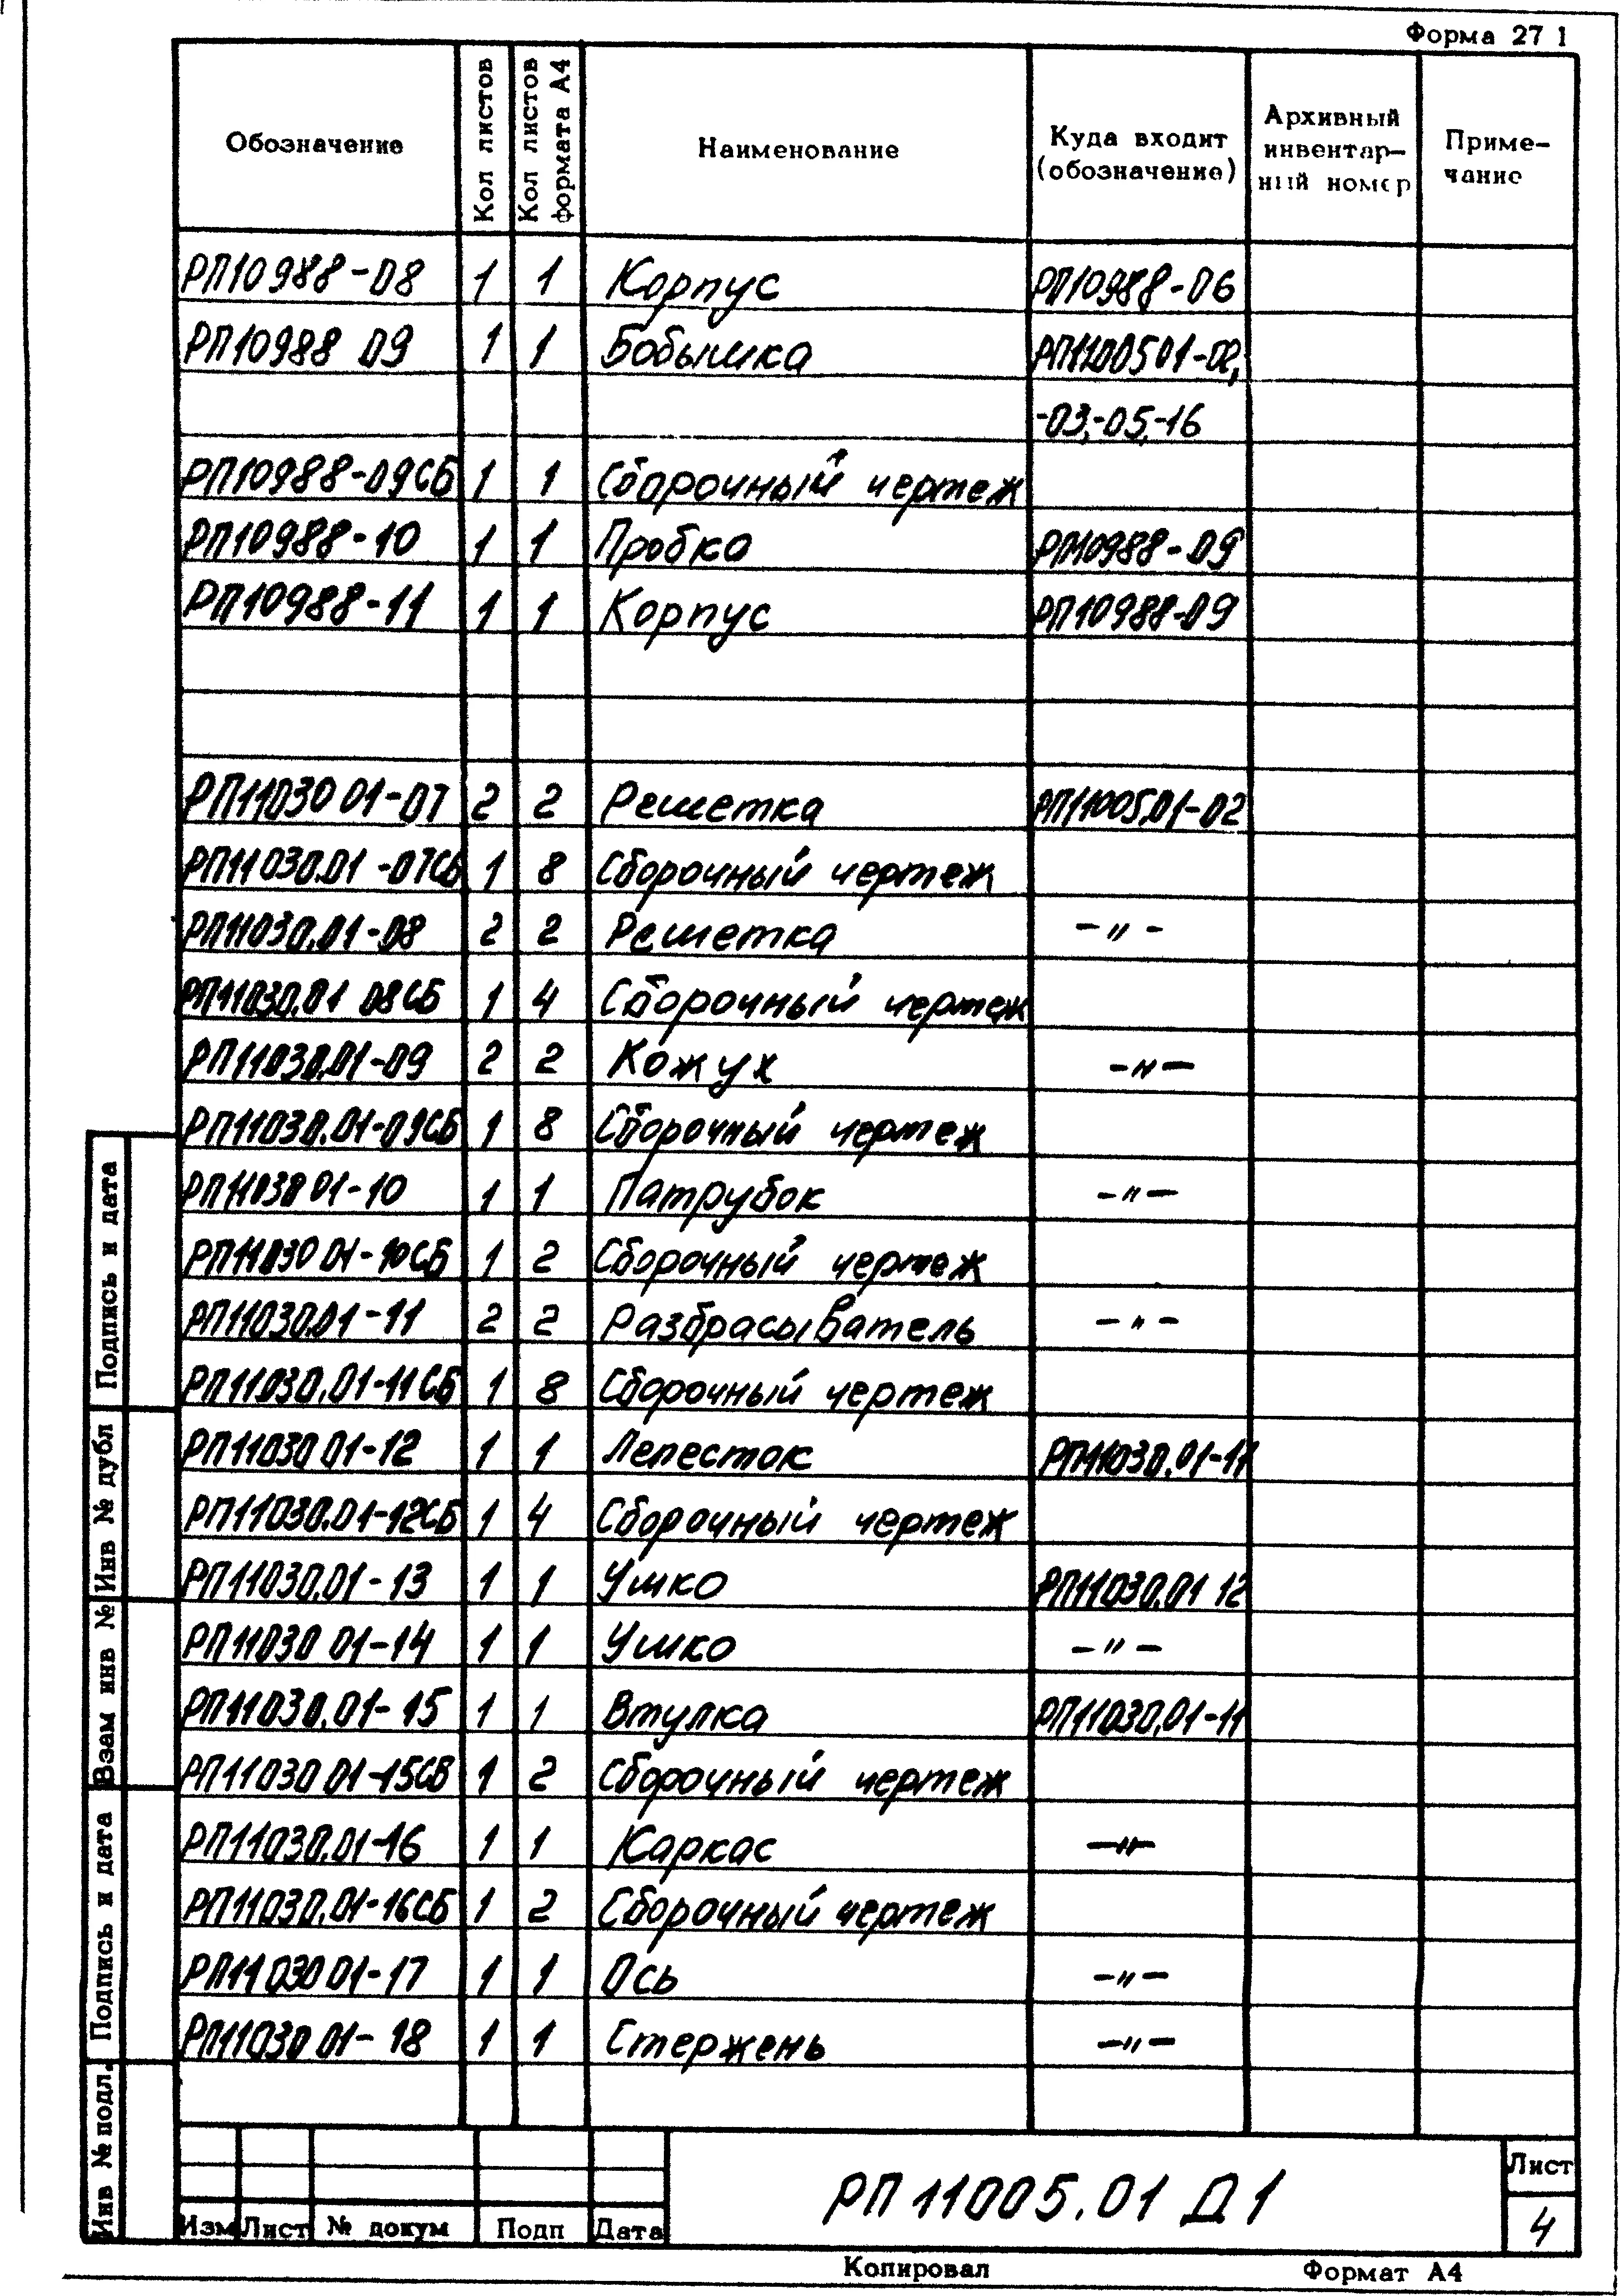 Форма 27 1
Обозначение Кол листов Кол листов формата А4 Наименование Куда входит (обозначение) Архивный инвентар-ный номер Приме-чание
РП10988-08 1 1 Корпус РП10988-06
РП10988 09 1 1 Бобышка РП11005 01-02,
-03,-05,-16
РП10988-09СБ 1 1 Сборочный чертеж
РП10988-10 1 1 Пробка РП10988-09
РП10988-11 1 1 Корпус РП10988-09
РП11030 01-07 2 2 Решетка РП11005.01-02
РП11030.01-07СБ 1 8 Сборочный чертеж
РП11030.01-08 2 2 Решетка -"-
РП11030.01 08СБ 1 4 Сборочный чертеж
РП11030.01-09 2 2 Кожух -"-
РП11030.01-09СБ 1 8 Сборочный чертеж
РП11030 01-10 1 1 Патрубок -"-
РП11030 01-10СБ 1 2 Сборочный чертеж
РП11030.01-11 2 2 Разбрасыватель -"-
РП11030.01-11СБ 1 8 Сборочный чертеж
РП11030 01-12 1 1 Лепесток РП11030.01-11
РП11030.01-12СБ 1 4 Сборочный чертеж
РП11030.01-13 1 1 Ушко РП11030.01 12
РП11030 01-14 1 1 Ушко -"-
РП11030.01-15 1 1 Втулка РП11030.01-11
РП11030 01-15СБ 1 2 Сборочный чертеж
РП11030.01-16 1 1 Каркас -"-
РП11030.01-16СБ 1 2 Сборочный чертеж
РП11030 01-17 1 1 Ось -"-
РП11030 01-18 1 1 Стержень -"-
Подпись и дата
Инв № дубл
Взам инв №
Подпись и дата
Инв № подл.
Изм Лист № докум Подп Дата
РП 11005.01 Д1
Лист
4
Копировал Формат А4